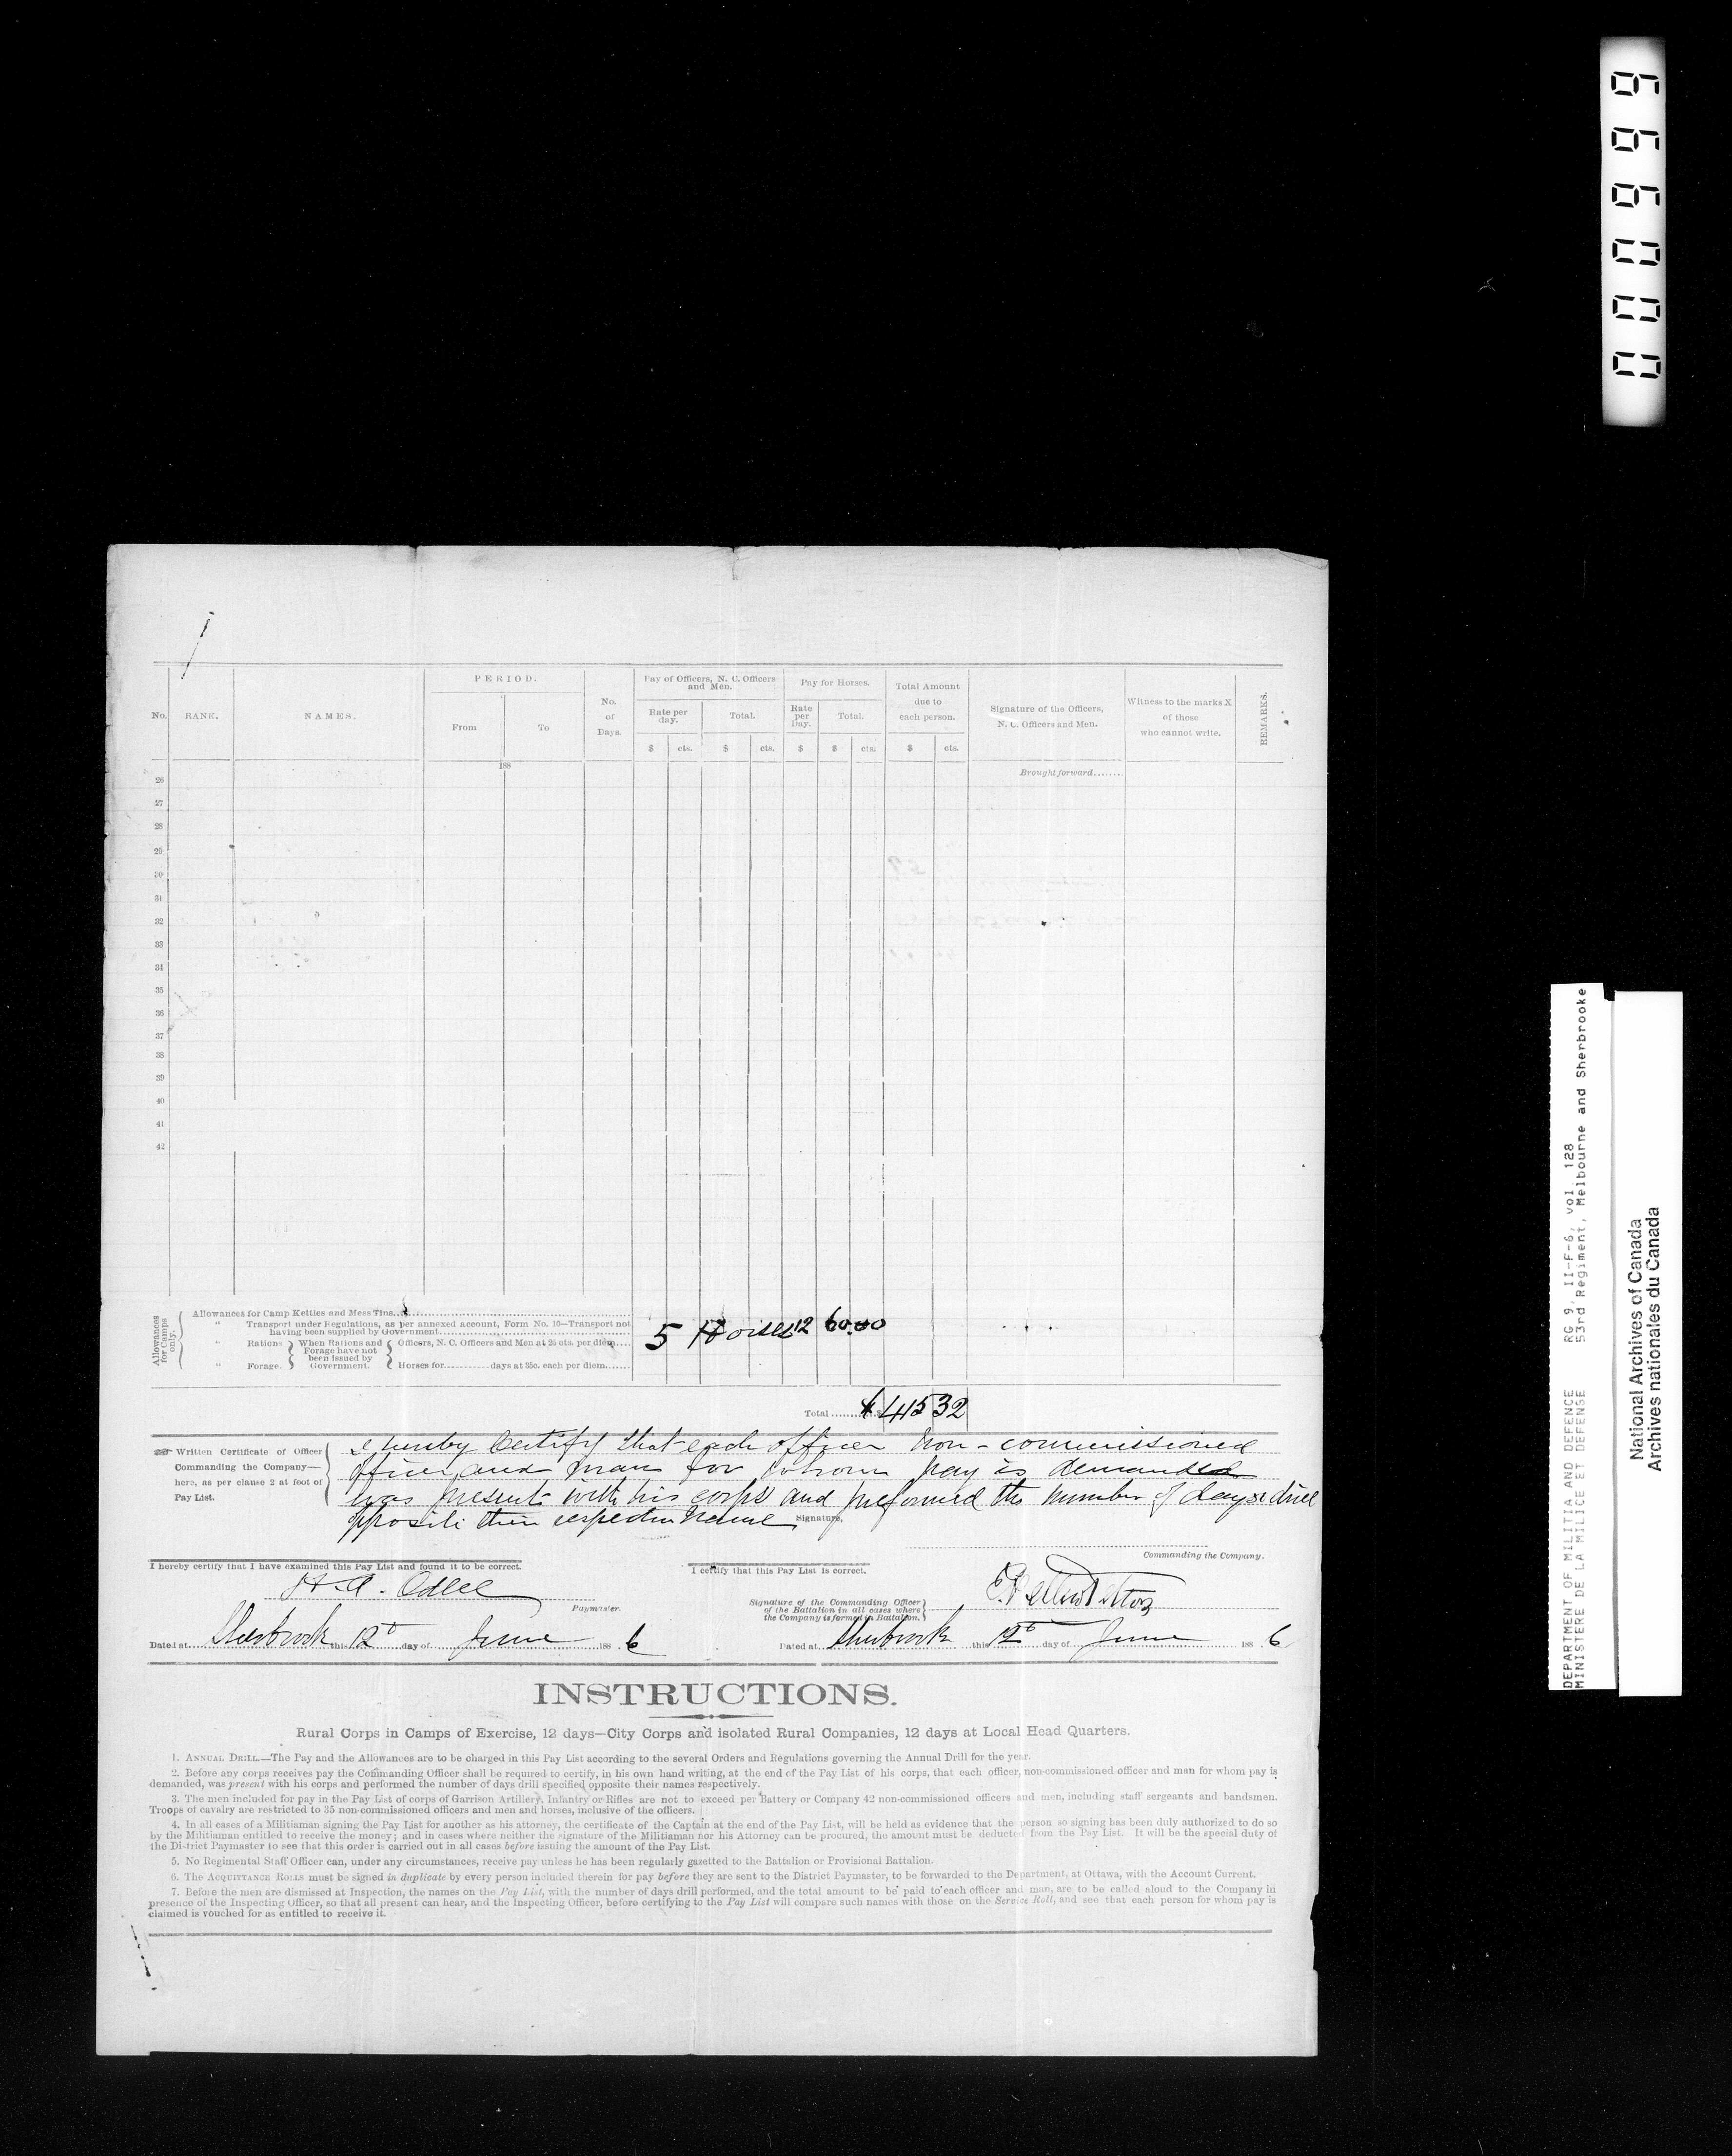 000999
No.
RANK.
NAMES.
PERIOD.
From
To
No. of Days.
Pay of Officers, N. C. Officers and Men.
Rate per day.
Total.
Pay for Horses.
Rate per Day.
Total.
Total Amount due to each person.
Signature of the Officers, N. C. Officers and Men.
Witness to the marks X of those who cannot write.
REMARKS.
$ cts. $ cts. $ $ cts. $ cts.
188
Brought forward.......
26
27
28
29
30
31
32
33
34
35
36
37
38
39
40
41
42
Allowances for Camps only.
Allowances for Camp Kettles and Mess Tins
" Transport under Regulations, as per annexed account, Form No. 10—Transport not having been supplied by Government
" Rations } When Rations and Forage have not been issued by Government. { Officers, N. C. Officers and Men at 25 cts. per diem
" Forage. } Horses for ........ days at 35c. each per diem
5 Horses 12 60.00
Total $ 415 32
Written Certificate of Officer Commanding the Company—here, as per clause 2 at foot of Pay List.
I hereby Certify that each officer non-commissioned
officer and man for whom pay is demanded
was present with his corps and preformed the number of days drill
opposite their respective name
Signature,
Commanding the Company.
I hereby certify that I have examined this Pay List and found it to be correct.
H. A. Odell
Paymaster.
Dated at Sherbrook this 12th day of June 1886
I certify that this Pay List is correct.
Signature of the Commanding Officer of the Battalion in all cases where the Company is formed in Battalion.
Dated at Sherbrook this 12th day of June 1886
INSTRUCTIONS.
Rural Corps in Camps of Exercise, 12 days—City Corps and isolated Rural Companies, 12 days at Local Head Quarters.
1. ANNUAL DRILL.—The Pay and the Allowances are to be charged in this Pay List according to the several Orders and Regulations governing the Annual Drill for the year.
2. Before any corps receives pay the Commanding Officer shall be required to certify, in his own hand writing, at the end of the Pay List of his corps, that each officer, non-commissioned officer and man for whom pay is
demanded, was present with his corps and performed the number of days drill specified opposite their names respectively.
3. The men included for pay in the Pay List of corps of Garrison Artillery, Infantry or Rifles are not to exceed per Battery or Company 42 non-commissioned officers and men, including staff sergeants and bandsmen.
Troops of cavalry are restricted to 35 non-commissioned officers and men and horses, inclusive of the officers.
4. In all cases of a Militiaman signing the Pay List for another as his attorney, the certificate of the Captain at the end of the Pay List, will be held as evidence that the person so signing has been duly authorized to do so
by the Militiaman entitled to receive the money; and in cases where neither the signature of the Militiaman nor his Attorney can be procured, the amount must be deducted from the Pay List. It will be the special duty of
the District Paymaster to see that this order is carried out in all cases before issuing the amount of the Pay List.
5. No Regimental Staff Officer can, under any circumstances, receive pay unless he has been regularly gazetted to the Battalion or Provisional Battalion.
6. The ACQUITTANCE ROLLS must be signed in duplicate by every person included therein for pay before they are sent to the District Paymaster, to be forwarded to the Department, at Ottawa, with the Account Current.
7. Before the men are dismissed at Inspection, the names on the Pay List, with the number of days drill performed, and the total amount to be paid to each officer and man, are to be called aloud to the Company in
presence of the Inspecting Officer, so that all present can hear, and the Inspecting Officer, before certifying to the Pay List will compare such names with those on the Service Roll, and see that each person for whom pay is
claimed is vouched for as entitled to receive it.
DEPARTMENT OF MILITIA AND DEFENCE RG 9, II-F-6, vol. 128
MINISTERE DE LA MILICE ET DEFENSE 53rd Regiment, Melbourne and Sherbrooke
National Archives of Canada
Archives nationales du Canada